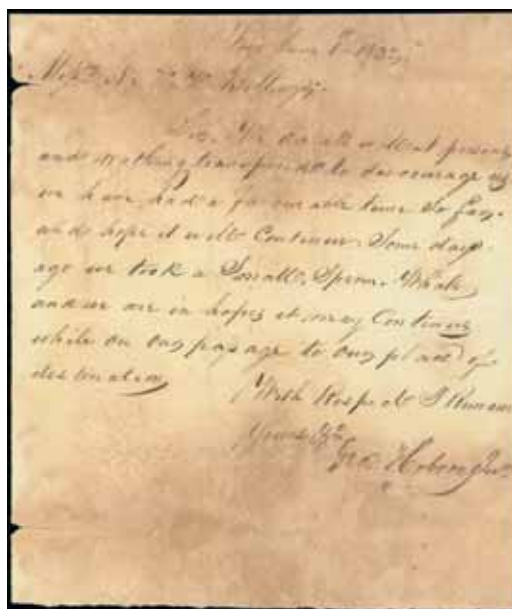 June 1st 1837
Sir. We are all well at present
and nothing transpired to discourage us
we have had a favourable time so far
and hope it will Continue. Some days
ago we took a Small Sperm Whale
and we are in hopes it may Continue
while on our pasage to our place of
destination
With Respect I Remain
Yours &c
Geo